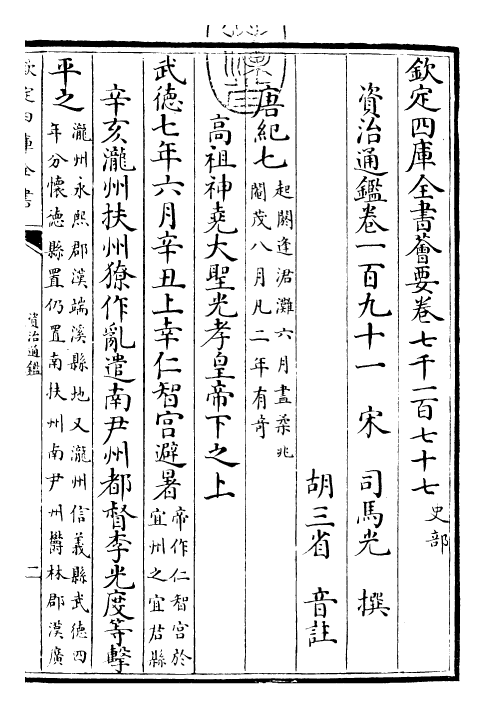 欽定四庫全書薈要卷七千一百七十七 史部
資治通鑑卷一百九十一 宋 司馬光 撰
胡三省 音註
唐紀七 起閼逢涒灘六月盡柔兆
閹茂八月凡二年有奇
高祖神堯大聖光孝皇帝下之上
武德七年六月辛丑上幸仁智宮避暑 帝作仁智宮於
宜州之宜君縣
辛亥瀧州扶州獠作亂遣南尹州都督李光度等擊
平之 瀧州永熙郡漢端溪縣地又瀧州信義縣武德四
年分懷德縣置仍置南扶州南尹州鬱林郡漢廣
欽定四庫全書
資治通鑑